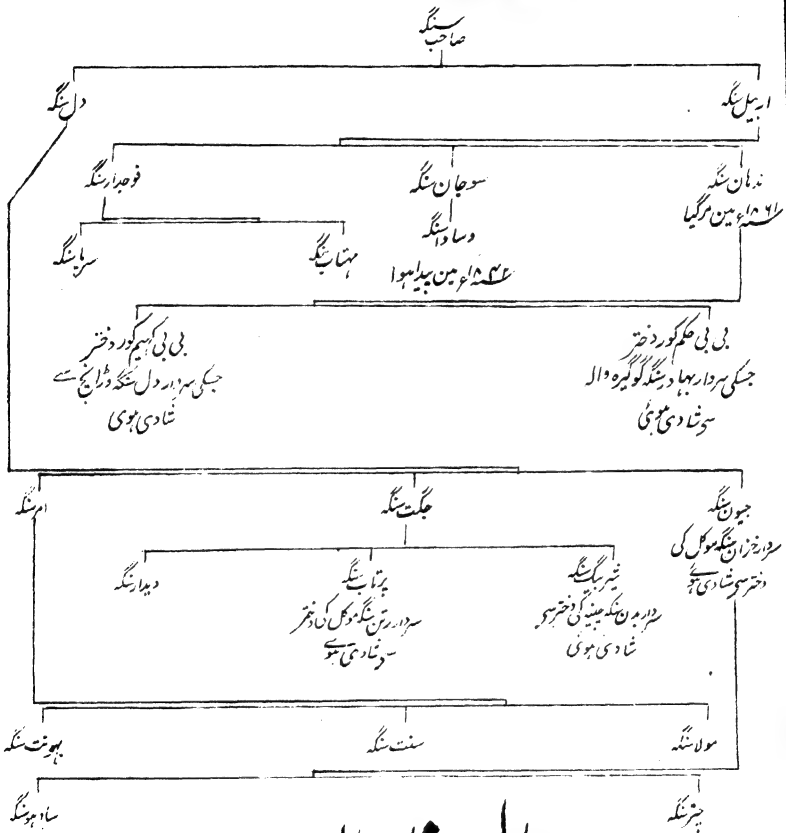 صاحب سنگہ
اربیل سنگہ
دل سنگہ
ندہان سنگہ
سنہ ۱۸۶۱ء مین مرگیا
سوجان سنگہ
وساوا سنگہ
سنہ ۱۸۴۲ء مین پیدا ہوا
فوجدار سنگہ
مہتاب سنگہ
سرپا سنگہ
بی بی حکم کور دختر
جسکی سردار بہادر سنگہ گوگیرہ والہ
سی شادی ہوئی
بی بی کہیم کور دختر
جسکی سردار دل سنگہ وڑایچ سے
شادی ہوی
جیون سنگہ
سردار خزان سنگہ موکل کی
دختر سی شادی ہوئے
جگت سنگہ
امر سنگہ
شیر بیگ سنگہ
سردار بدن سنگہ چینیہ کی دختر سی
شادی ہوئی
پرتاب سنگہ
سردار رتن سنگہ موکل کی دختر
سے شادی ہوے
دیدار سنگہ
مولا سنگہ
سنت سنگہ
بہونت سنگہ
چتر سنگہ
سادہو سنگہ